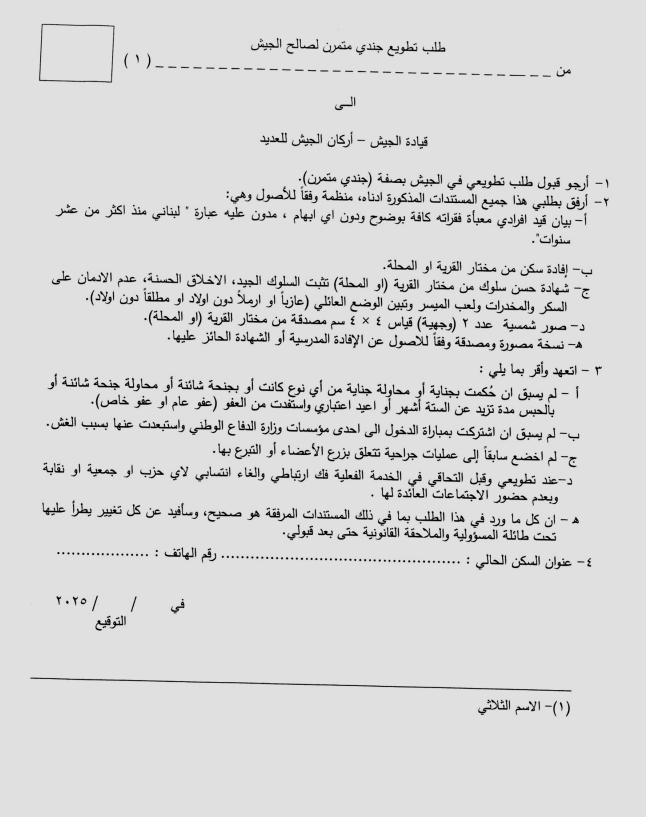 طلب تطويع جندي متمرن لصالح الجيش
من _ _ _ _ _ _ _ _ _ _ _ _ _ _ _ _ _ _ _ _ _ _ _ _ _ _ _ _ _ _ (١)
الــى
قيادة الجيش – أركان الجيش للعديد
١- أرجو قبول طلب تطويعي في الجيش بصفة (جندي متمرن).
٢- أرفق بطلبي هذا جميع المستندات المذكورة ادناه، منظمة وفقاً للأصول وهي:
أ- بيان قيد افرادي معبأة فقراته كافة بوضوح ودون اي ابهام ، مدون عليه عبارة " لبناني منذ اكثر من عشر
سنوات".
ب- إفادة سكن من مختار القرية او المحلة.
ج- شهادة حسن سلوك من مختار القرية (او المحلة) تثبت السلوك الجيد، الاخلاق الحسنة، عدم الادمان على
السكر والمخدرات ولعب الميسر وتبين الوضع العائلي (عازباً او ارملاً دون اولاد او مطلقاً دون اولاد).
د- صور شمسية عدد ٢ (وجهية) قياس ٤ × ٤ سم مصدقة من مختار القرية (او المحلة).
هـ- نسخة مصورة ومصدقة وفقاً للاصول عن الإفادة المدرسية أو الشهادة الحائز عليها.
٣ - اتعهد وأقر بما يلي :
أ - لم يسبق ان حُكمت بجناية أو محاولة جناية من أي نوع كانت أو بجنحة شائنة أو محاولة جنحة شائنة أو
بالحبس مدة تزيد عن الستة أشهر أو اعيد اعتباري واستفدت من العفو (عفو عام او عفو خاص).
ب- لم يسبق ان اشتركت بمباراة الدخول الى احدى مؤسسات وزارة الدفاع الوطني واستبعدت عنها بسبب الغش.
ج- لم اخضع سابقاً إلى عمليات جراحية تتعلق بزرع الأعضاء أو التبرع بها.
د-عند تطويعي وقبل التحاقي في الخدمة الفعلية فك ارتباطي والغاء انتسابي لاي حزب او جمعية او نقابة
وبعدم حضور الاجتماعات العائدة لها .
هـ - ان كل ما ورد في هذا الطلب بما في ذلك المستندات المرفقة هو صحيح، وسأفيد عن كل تغيير يطرأ عليها
تحت طائلة المسؤولية والملاحقة القانونية حتى بعد قبولي.
٤- عنوان السكن الحالي : ............................................... رقم الهاتف : ...................
في / / ٢٠٢٥
التوقيع
(١)- الاسم الثلاثي